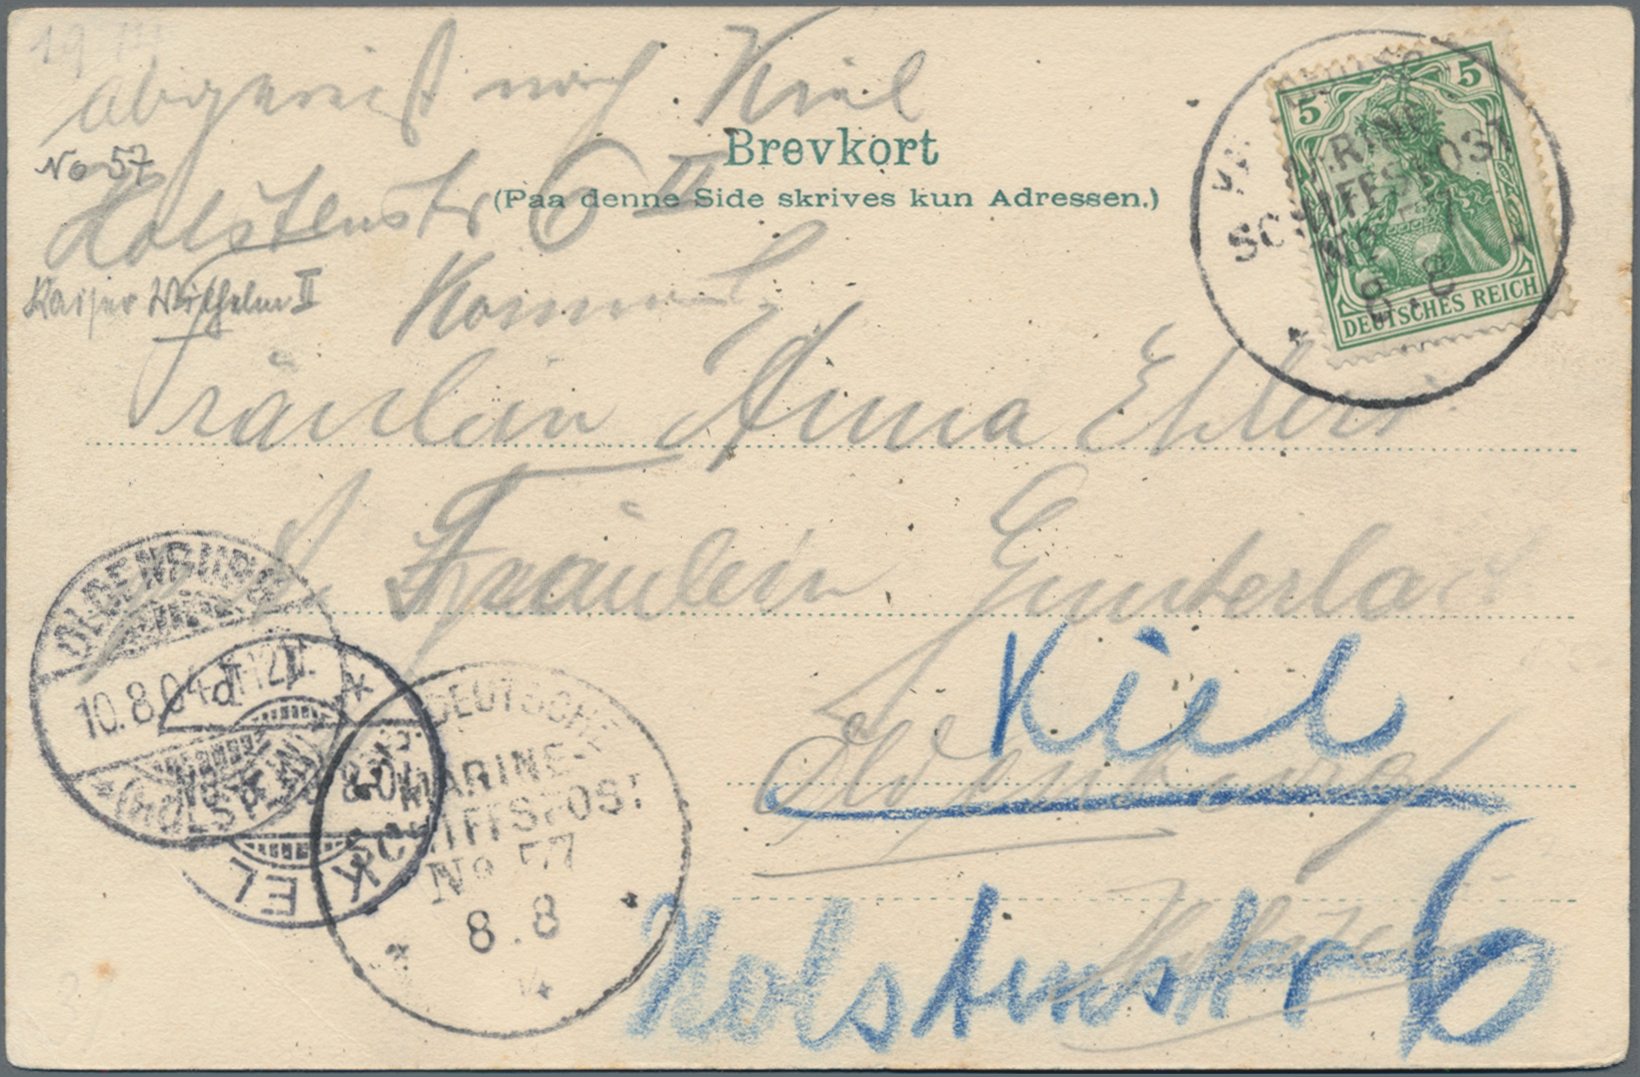 abgereist nach Kiel
No 57
Brevkort
Holstenstr 6 II
(Paa denne Side skrives kun Adressen.)
Kaiser Wilhelm II
Fräulein Anna Ehlers
Fräulein
Kiel
Oldenburg
Holstenstr 6
Holstein
5 5
DEUTSCHES REICH
MARINE-
SCHIFFSPOST
No 57
8.8
OLDENBURG
10.8.04
(HOLSTEIN)
KIEL
DEUTSCHE
MARINE-
SCHIFFSPOST
No 57
8.8